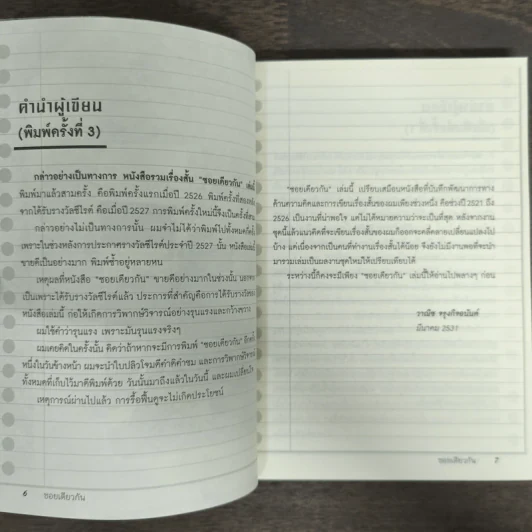 คำนำผู้เขียน
(พิมพ์ครั้งที่ 3)
กล่าวอย่างเป็นทางการ หนังสือรวมเรื่องสั้น "ซอยเดียวกัน" เล่มนี้
พิมพ์มาแล้วสามครั้ง คือพิมพ์ครั้งแรกเมื่อปี 2526 พิมพ์ครั้งที่สอง
จากได้รับรางวัลซีไรต์ คือเมื่อปี 2527 การพิมพ์ครั้งใหม่นี้จึงเป็นครั้งที่สาม
กล่าวอย่างไม่เป็นทางการนั้น ผมจำไม่ได้ว่าพิมพ์ไปทั้งหมดกี่ครั้ง
เพราะในช่วงหลังการประกาศรางวัลซีไรต์ประจำปี 2527 นั้น หนังสือเล่มนี้
ขายดีเป็นอย่างมาก พิมพ์ซ้ำอยู่หลายหน
เหตุผลที่หนังสือ "ซอยเดียวกัน" ขายดีอย่างมากในช่วงนั้น นอกจาก
เป็นเพราะได้รับรางวัลซีไรต์แล้ว ประการที่สำคัญคือการได้รับรางวัลของ
หนังสือเล่มนี้ ก่อให้เกิดการวิพากษ์วิจารณ์อย่างรุนแรงและกว้างขวาง
ผมใช้คำว่ารุนแรง เพราะมันรุนแรงจริงๆ
ผมเคยคิดในครั้งนั้น คิดว่าถ้าหากจะมีการพิมพ์ "ซอยเดียวกัน" อีกครั้ง
หนึ่งในวันข้างหน้า ผมจะนำใบปลิวโจมตีคำติคำชม และการวิพากษ์วิจารณ์
ทั้งหมดที่เก็บไว้มาตีพิมพ์ด้วย วันนั้นมาถึงแล้วในวันนี้ และผมเปลี่ยนใจ
เหตุการณ์ผ่านไปแล้ว การรื้อฟื้นดูจะไม่เกิดประโยชน์
6 ซอยเดียวกัน
"ซอยเดียวกัน" เล่มนี้ เปรียบเสมือนหนังสือที่บันทึกพัฒนาการทาง
ด้านความคิดและการเขียนเรื่องสั้นของผมเพียงช่วงหนึ่ง คือช่วงปี 2521 ถึง
2526 เป็นงานที่น่าพอใจ แต่ไม่ได้หมายความว่าจะเป็นที่สุด หลังจากงาน
ชุดนี้แล้วแนวคิดที่จะเขียนเรื่องสั้นของผมก็ออกจะคลี่คลายเปลี่ยนแปลงไป
บ้าง แต่เนื่องจากเป็นคนที่ทำงานเรื่องสั้นได้น้อย จึงยังไม่มีงานพอที่จะนำ
มารวมเล่มเป็นผลงานชุดใหม่ให้เปรียบเทียบได้
ระหว่างนี้ก็คงจะมีเพียง "ซอยเดียวกัน" เล่มนี้ให้อ่านไปพลางๆ ก่อน
วาณิช จรุงกิจอนันต์
มีนาคม 2531
ซอยเดียวกัน 7